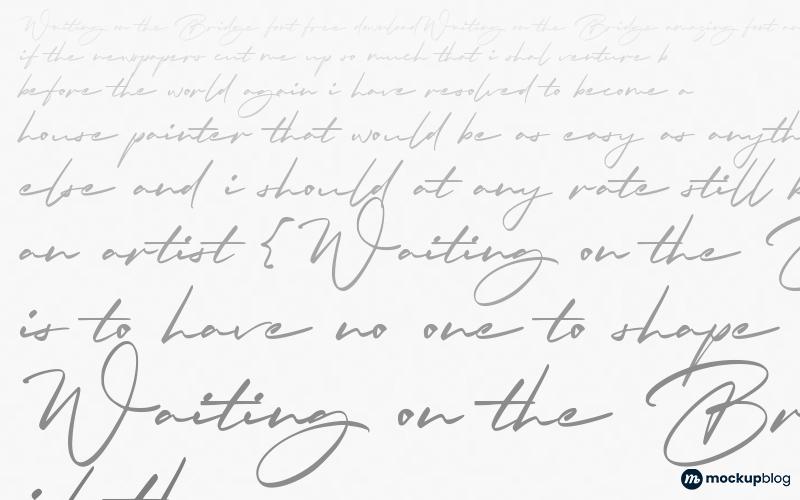 Waiting on the Bridge font free download Waiting on the Bridge amazing font
if the newspapers cut me up so much that i shal venture b
before the world again i have resolved to become a
house painter that would be as easy as anyth
else and i should at any rate still
an artist { Waiting on the
is to have no one to shape
Waiting on the Br
mockupblog